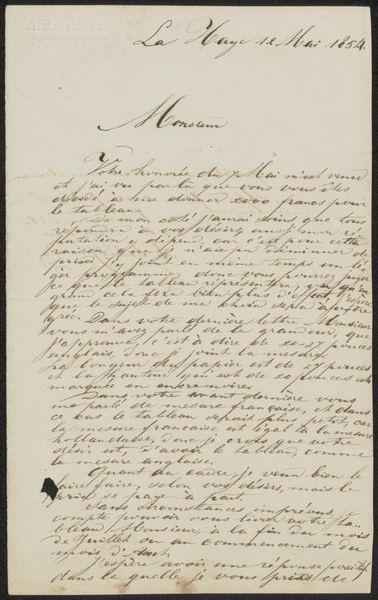 La Haye 12 Mai 1854.
Monsieur
Votre honorée du 7 Mai m'est venu
et j'ai vu par la que vous vous êtes
décidé à me donner 2000 francs pour
le tableau.
De mon coté j'aurai soins, que tous
répondra à vos désirs, ma
putation y dépend, car c'est pour cette
raison que je n'ai pu diminuer de
prix. en même tems un
programme donc vous pourrez juger
ce que le tableau représentera,
grand cela fera bien plus d'effet, j'espère
que le sujet de mon choix sera à votre
gré. Dans votre dernière lettre Monsieur
vous m'avez parlé de la grandeur, que
j'approuve, c'est à dire de 20-27 pouces
anglais, donc je joint la mesure.
la longeur du papier est de 27 pouces
et la hauteur de 20 pouces est
marquée en encre noire.
Dans votre avant dernière vous
me parlé de mesure française, et dans
ce cas le tableau serait plus petit, car
la mesure francaise est égal à la mesure
hollandaise, donc je crois que votre
désir est, d'avoir le tableau comme
la mesure anglaise.
Quant au cadre, je veux bien le
faire faire, selon vos désirs, mais le
prix se paye à part.
Sans circonstances imprévus, je
compte pouvoir vous livrer votre ta-
bleau, Monsieur, à la fin du mois
de Juillet ou au commencement du
mois d'Août.
J'espère avoir une réponse positif
dans la quelle je vous prie de